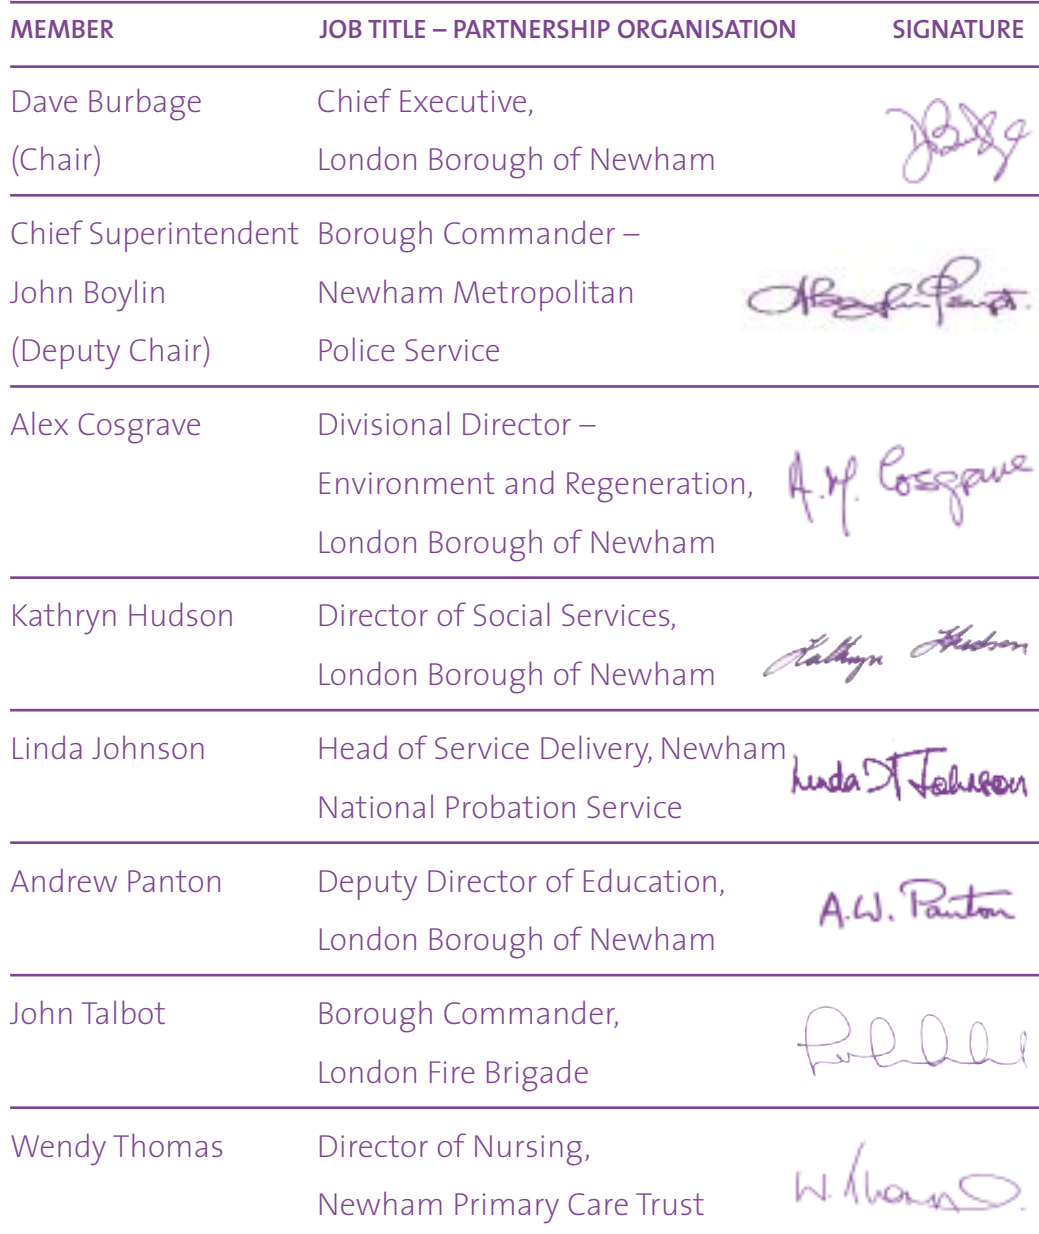 MEMBER JOB TITLE – PARTNERSHIP ORGANISATION SIGNATURE
Dave Burbage Chief Executive,
(Chair) London Borough of Newham
Chief Superintendent Borough Commander –
John Boylin Newham Metropolitan
(Deputy Chair) Police Service
Alex Cosgrave Divisional Director –
Environment and Regeneration, A.M. Cosgrave
London Borough of Newham
Kathryn Hudson Director of Social Services,
London Borough of Newham Kathryn Hudson
Linda Johnson Head of Service Delivery, Newham Linda Johnson
National Probation Service
Andrew Panton Deputy Director of Education, A.W. Panton
London Borough of Newham
John Talbot Borough Commander,
London Fire Brigade
Wendy Thomas Director of Nursing,
Newham Primary Care Trust W. Thomas